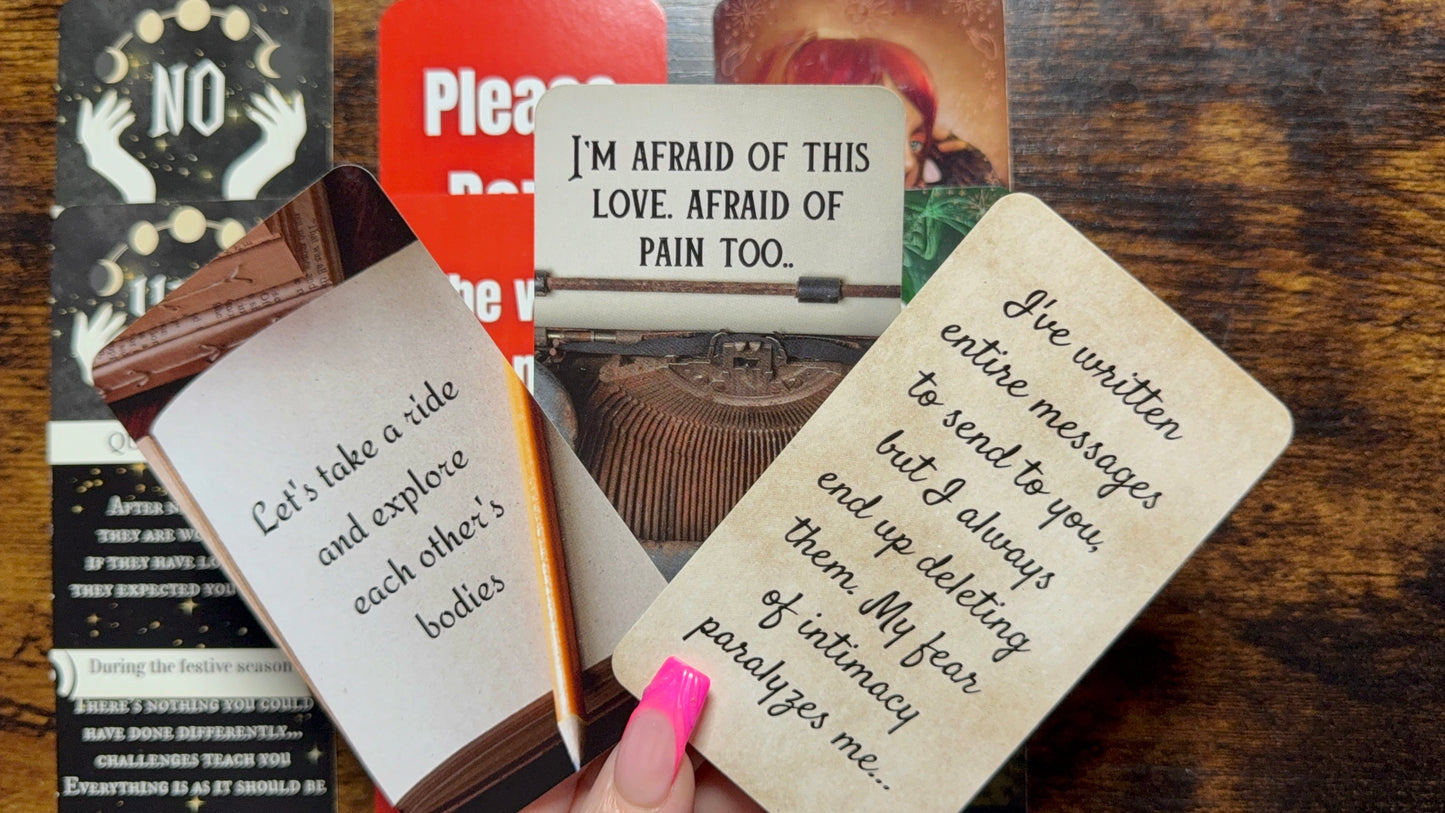 NO
Please
I'M AFRAID OF THIS
LOVE. AFRAID OF
PAIN TOO..
Let's take a ride
and explore
each other's
bodies
I've written
entire messages
to send to you,
but I always
end up deleting
them. My fear
of intimacy
paralyzes me...
AFTER
THEY ARE
IF THEY HAVE
THEY EXPECTED YOU
During the festive season
THERE'S NOTHING YOU COULD
HAVE DONE DIFFERENTLY...
CHALLENGES TEACH YOU
EVERYTHING IS AS IT SHOULD BE